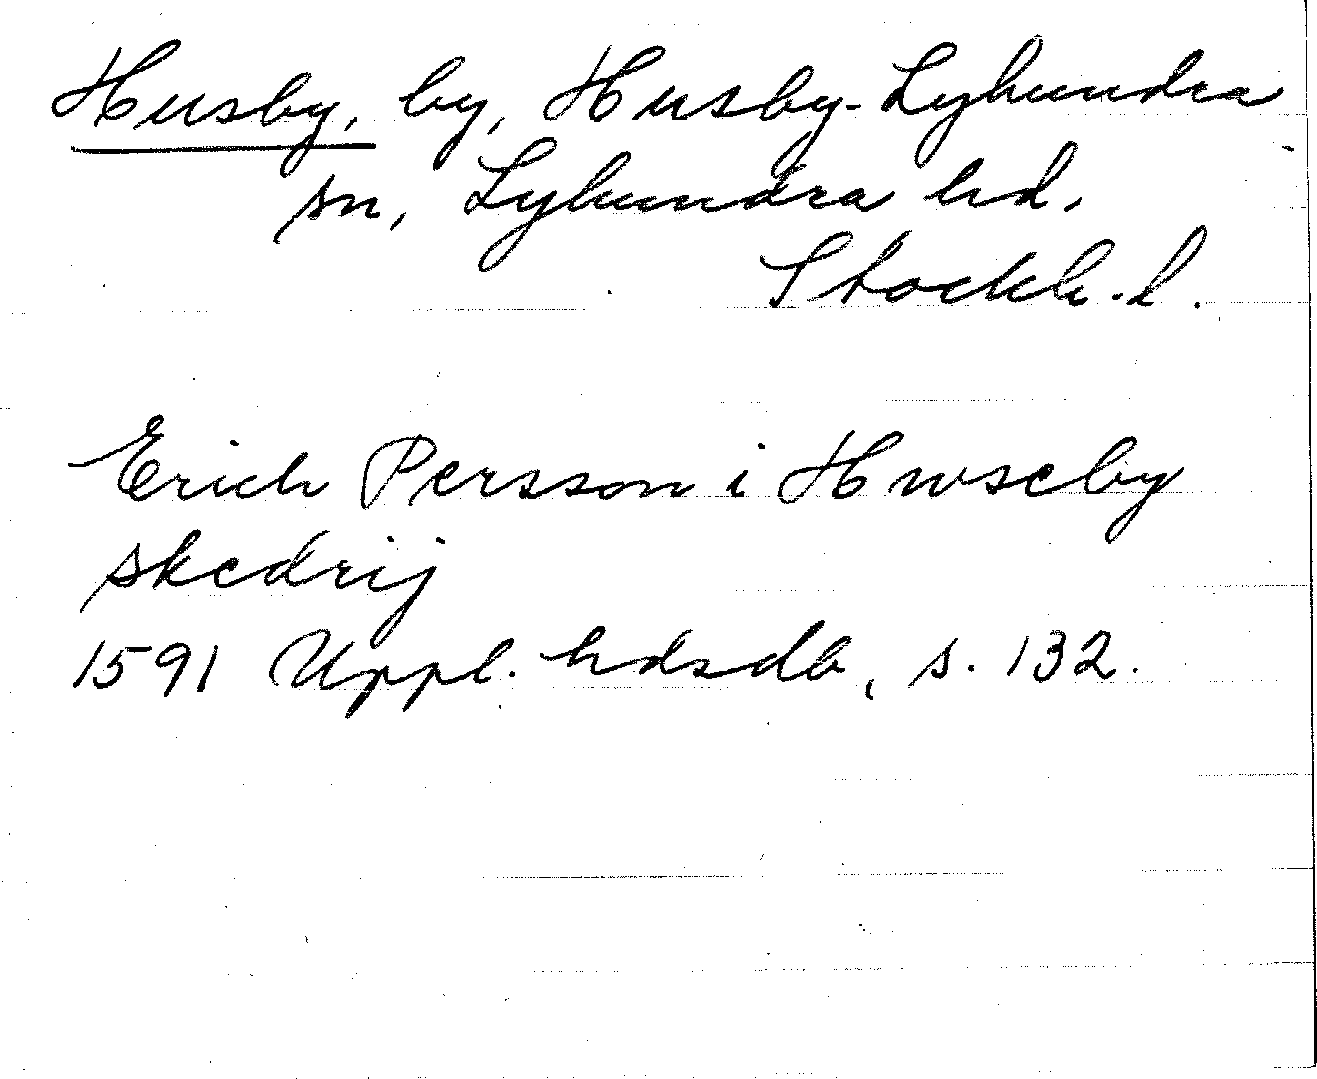 Husby, by, Husby-Lyhundra
sn, Lyhundra hd.
Stockh. l.
Erich Persson i Hwseby
skedrij
1591 Uppl. hdsdb, s. 132.